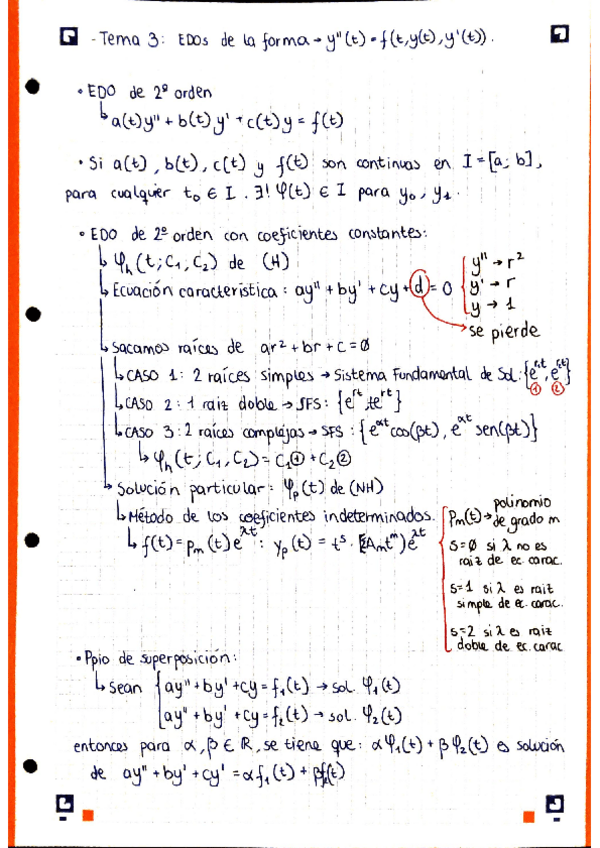 - Tema 3: EDOs de la forma → y''(t) = f(t, y(t), y'(t)).
• EDO de 2º orden
↳ a(t)y'' + b(t)y' + c(t)y = f(t)
• Si a(t), b(t), c(t) y f(t) son continuas en I = [a; b],
para cualquier t₀ ∈ I. ∃! φ(t) ∈ I para y₀, y₁.
• EDO de 2º orden con coeficientes constantes:
↳ φₕ(t; C₁, C₂) de (H)
↳ Ecuación característica: ay'' + by' + cy + d = 0
y'' → r²
y' → r
y → 1
se pierde
↳ Sacamos raíces de ar² + br + c = 0
↳ CASO 1: 2 raíces simples → Sistema Fundamental de Sol: {e^{r₁t}, e^{r₂t}}
① ②
↳ CASO 2: 1 raiz doble → SFS: {e^{rt}, te^{rt}}
↳ CASO 3: 2 raíces complejas → SFS: {e^{αt} cos(βt), e^{αt} sen(βt)}
↳ φₕ(t; C₁, C₂) = C₁① + C₂②
↳ Solución particular: φₚ(t) de (NH)
↳ Método de los coeficientes indeterminados.
↳ f(t) = pₘ(t)e^{λt} : yₚ(t) = t^s · (ΣAₘt^m)e^{λt}
pₘ(t) → polinomio de grado m
s=0 si λ no es
raiz de ec. carac.
s=1 si λ es raiz
simple de ec. carac.
s=2 si λ es raiz
doble de ec. carac
• Ppio de superposición:
↳ Sean { ay'' + by' + cy = f₁(t) → sol. φ₁(t)
ay'' + by' + cy = f₂(t) → sol. φ₂(t)
entonces para α, β ∈ ℝ, se tiene que: αφ₁(t) + βφ₂(t) es solución
de ay'' + by' + cy' = αf₁(t) + βf₂(t)